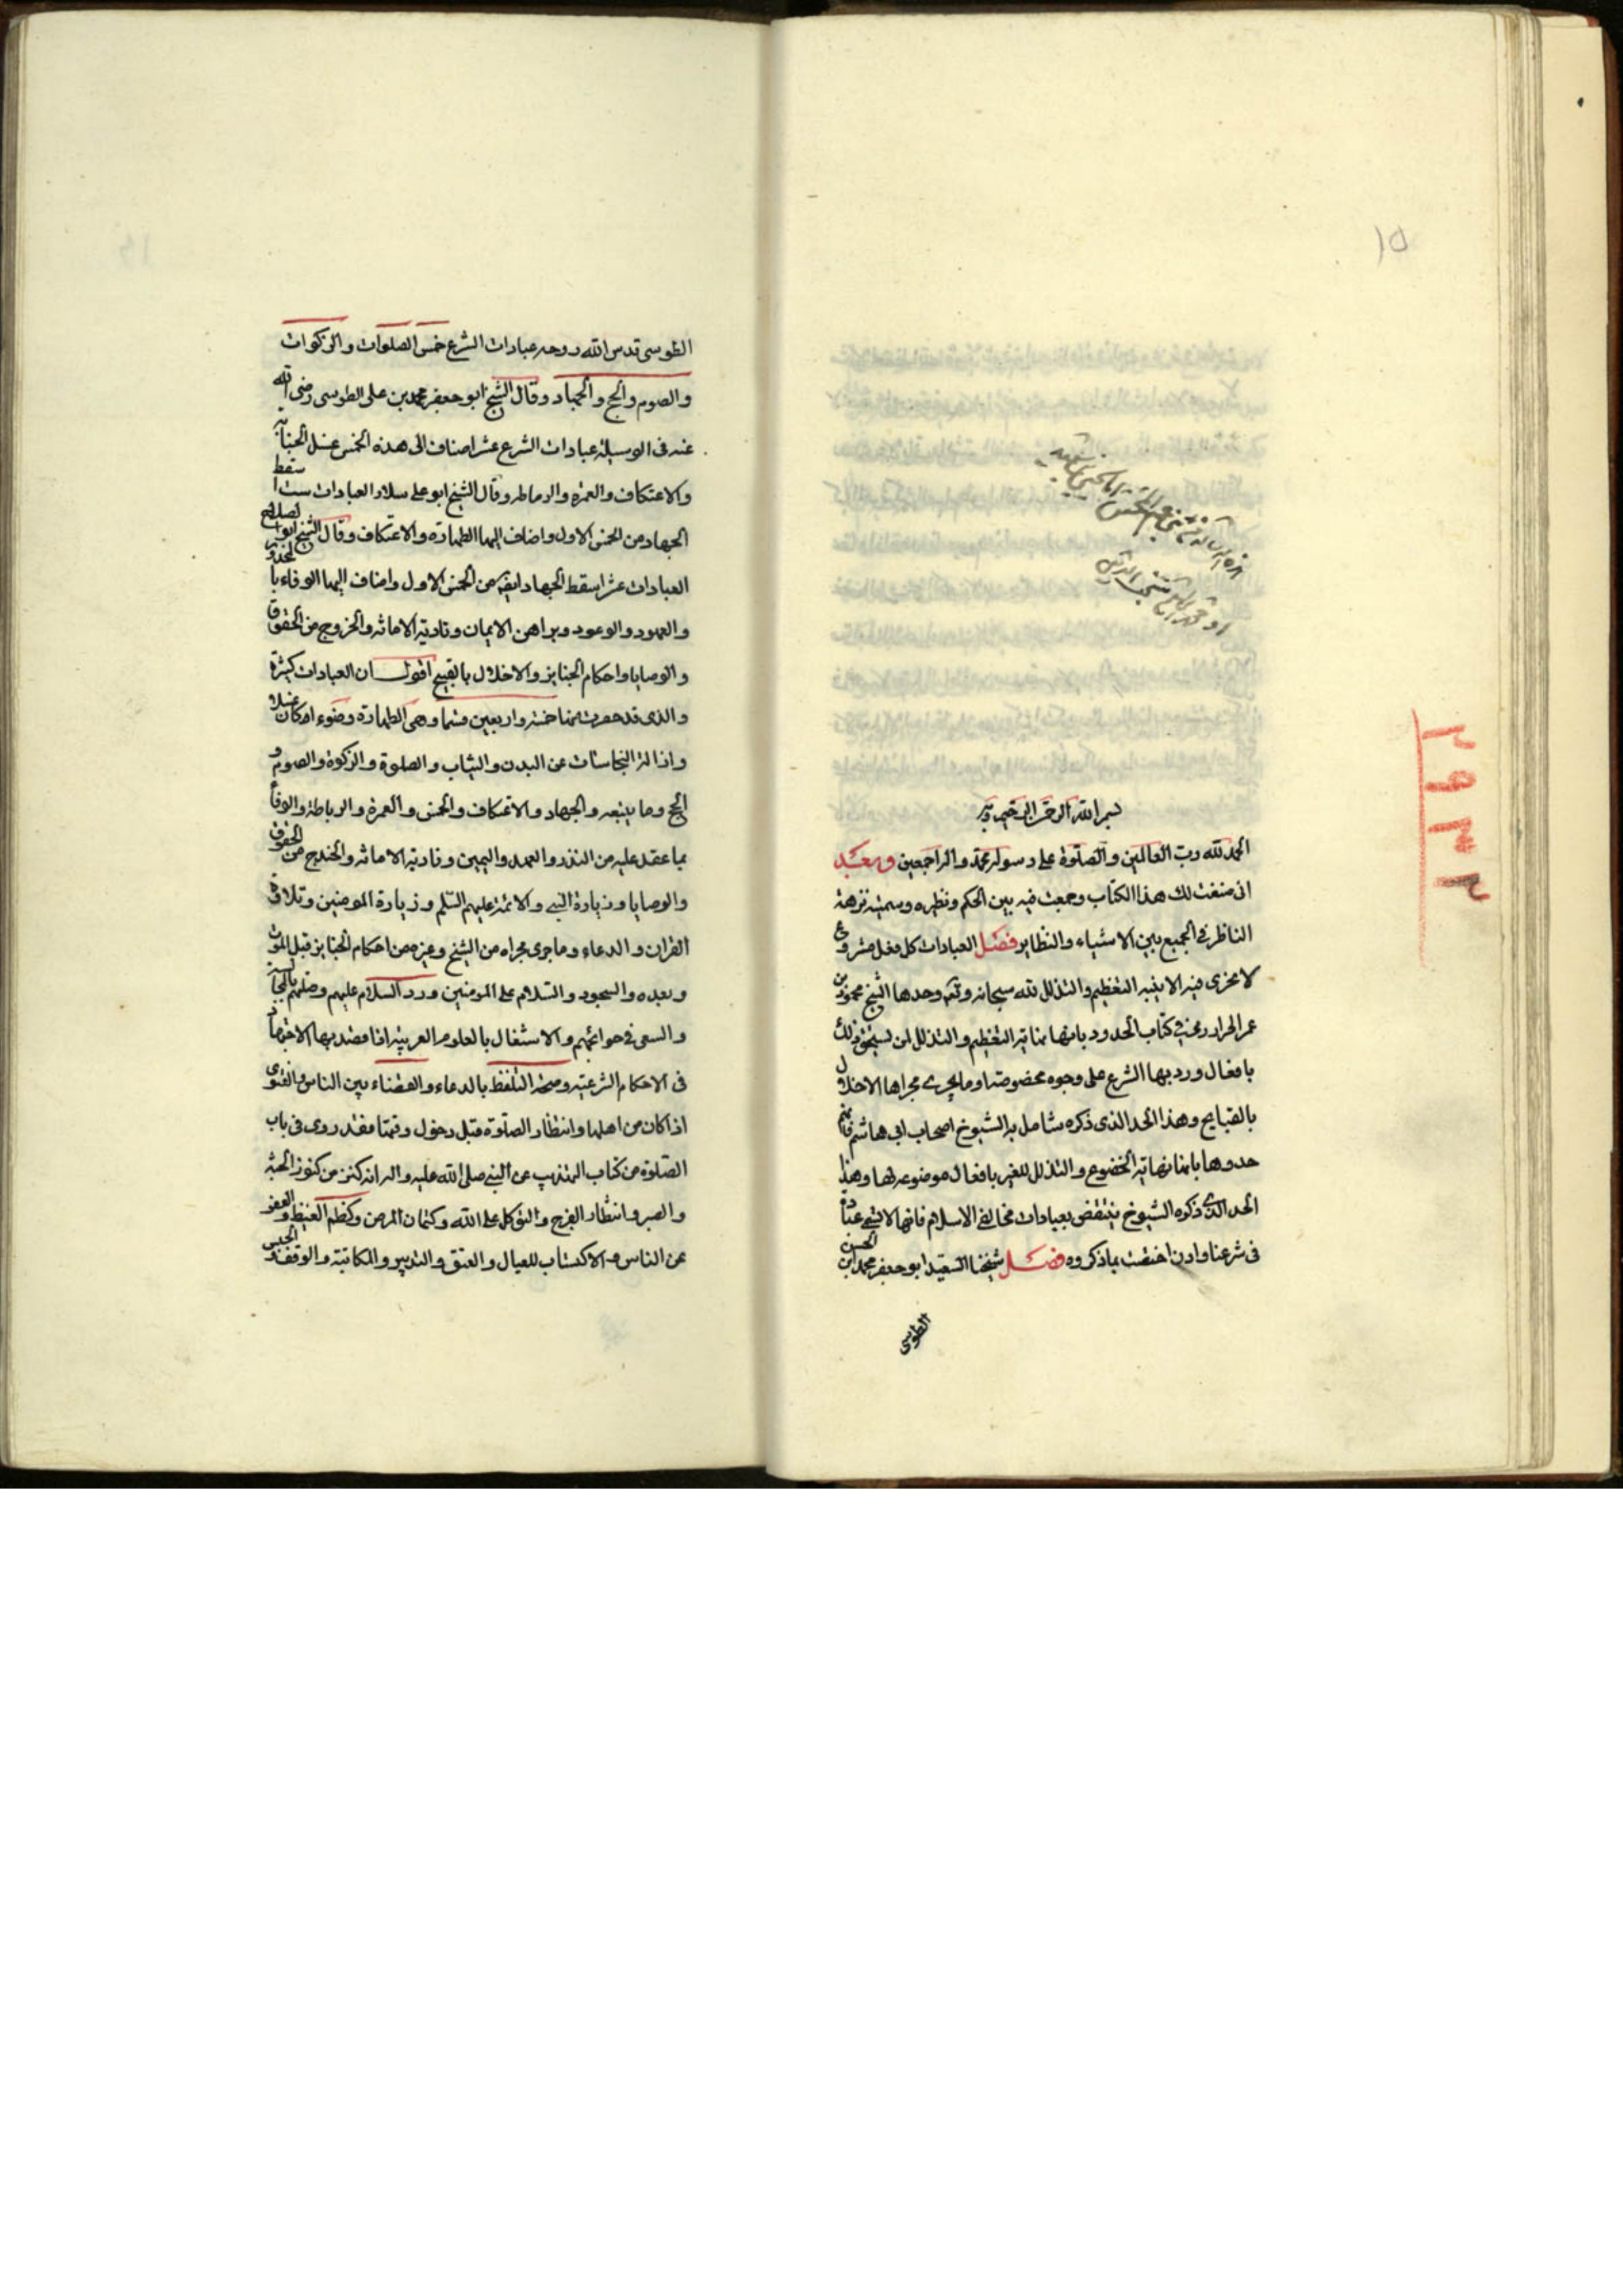 ١٥
بسم الله الرحمن الرحيم وبه
الحمد لله رب العالمين والصلوة على رسوله محمد واله اجمعين وبعد
انى صنفت لك هذا الكتاب وجمعت فيه بين الحكم ونظيره وسميته نزهة
الناظر فى الجمع بين الاشباه والنظاير فصل العبادات كل فعل مشروع
لا يجزى فيه الا بنية التعظيم والتذلل لله سبحانه وتعـ وحدها الشيخ محمود بن
عمر فى كتاب الحدود بانها نهاية التعظيم والتذلل لمن يستحق ذلك
بافعال ورد بها الشرع على وجوه مخصوصة او ما يجرى مجراها الاخلال
بالقبايح وهذا الحد الذى ذكره الشيوخ اصحاب ابى هاشم فانهم
حدوها بانها نهاية الخضوع والتذلل للغير بافعال موضوعة لها وهذا
الحد الذى ذكره الشيوخ ينتقض بعبادات مخالفى الاسلام فانها لا تسمى عبادة
فى شرعنا وان اختصت بما ذكروه فصل شيخنا السعيد ابو جعفر محمد ابن الحسن
الطوسى
٢٩٣٢
الطوسى قدس الله روحه عبادات الشرع خمس الصلوات والزكوات
والصوم والحج والجهاد وقال الشيخ ابو جعفر محمد بن على الطوسى رضى الله
عنه فى الوسيلة عبادات الشرع عشر اضاف الى هذه الخمس غسل الجنابة
والاعتكاف والعمرة والرباطه وقال الشيخ ابو على سلار العبادات ست اسقط
الجهاد من الخمس الاول واضاف اليها الطهارة والاعتكاف وقال الشيخ ابو الصلاح
العبادات عشر اسقط الجهاد ايضا من الخمس الاول واضاف اليها الوفاء بالنذور
والعهود والوعود وبراهن الايمان وتادية الامانة والخروج من الحقوق
والوصايا واحكام الجنايز والاخلال بالقبيح اقول ان العبادات كثيرة
والذى قد حصرت منها خمسة واربعين قسما وهى الطهارة وضوء ا كان او غسلا
وازالة النجاسات عن البدن والثياب والصلوة والزكوة والصوم و
الحج وما يتبعه والجهاد والاعتكاف والخمس والعمرة والرباطة والوفاء
بما عقد عليه من النذر والعهد واليمين وتادية الامانة والخروج من الحقوق
والوصايا وزيارة النبى والائمة عليهم السلم وزيارة المومنين وتلاوة
القران والدعاء وما جرى مجراه من التسبيح وغيره من احكام الجنايز قبل الموت
وبعده والسجود والسلام على المومنين ورد السلام عليهم وصلتهم بالمجالسة
والسعى فى حوائجهم والاشتغال بالعلوم العربية اذا قصد بها الاجتهاد
فى الاحكام الشرعية وصحة التلفظ بالدعاء والقضاء بين الناس والفتوى
اذا كان من اهلها وانتظار الصلوة قبل دخول وقتها فقد روى فى باب
الصلوة من كتاب التهذيب عن النبى صلى الله عليه واله انه كنز من كنوز الجنة
والصبر وانتظار الفرج والتوكل على الله وكتمان المرض وكظم الغيظ والعفو
عن الناس والاكتساب للعيال والعتق والتدبير والمكاتبة والوقف والحبس